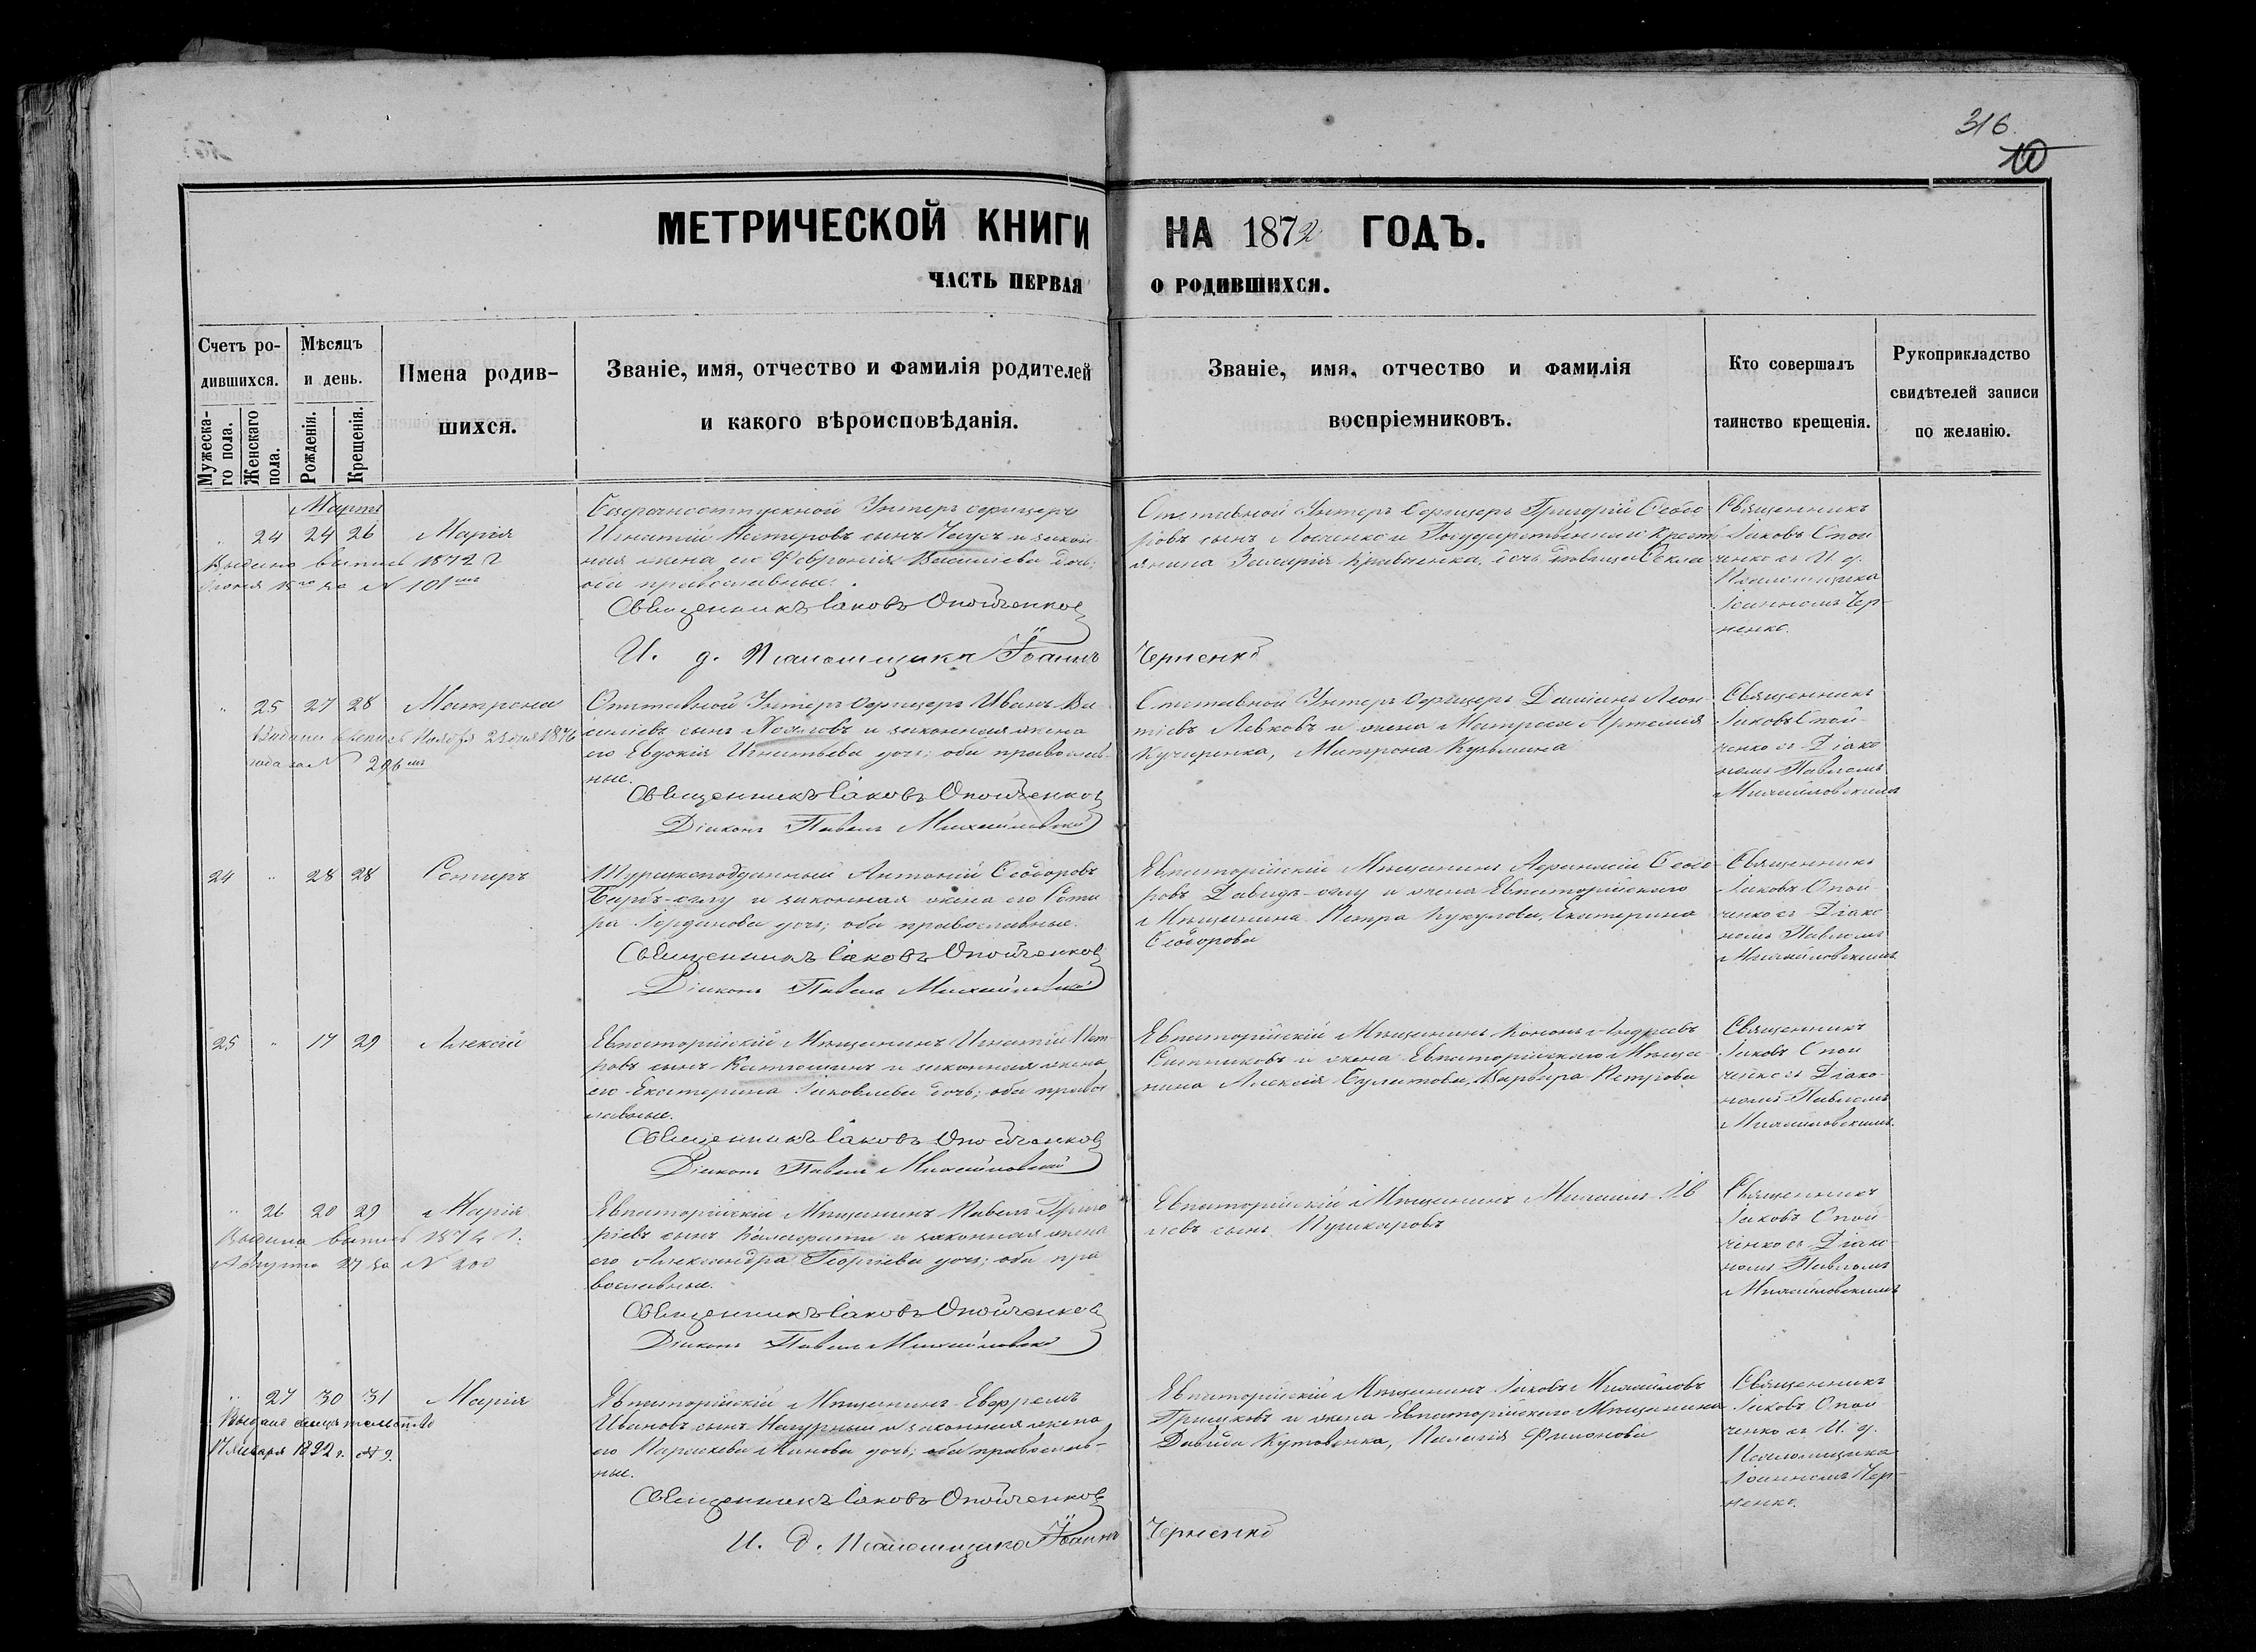 316
10
МЕТРИЧЕСКОЙ КНИГИ НА 1872 ГОДЪ.
ЧАСТЬ ПЕРВАЯ О РОДИВШИХСЯ.
Счетъ ро-
дившихся.
Мужеска-
го пола.
Женскаго
пола.
Мѣсяцъ
и день.
Рожденія.
Крещенія.
Имена родив-
шихся.
Званіе, имя, отчество и фамилія родителей
и какого вѣроисповѣданія.
Званіе, имя, отчество и фамилія
воспріемниковъ.
Кто совершалъ
таинство крещенія.
Рукоприкладство
свидѣтелей записи
по желанію.
Марта
" 24 24 26 Марія
Выдана выпись 1872 г
за N 101
Унтеръ офицеръ
Игнатій Нестеровъ сынъ и закон
ная жена его Февронія Васильева дочь;
оба православные.
Священникъ Іаковъ Опойченковъ
И. д. Псаломщика Іоаннъ Черненко
Отставной Унтеръ Офицеръ Григорій Ѳеодо
ровъ сынъ и Государственнаго Крест
янина Захарія Кравченка, дочь девица Ѳекла
Священникъ
Іаковъ Опой
ченко съ И. д.
Псаломщика
Іоанномъ Чер-
ненко.
" 25 27 28 Матрона
Выдана выпись Ноября 23 дня 1876
года за N 296
Отставной Унтеръ Офицеръ Иванъ Ва
сильевъ сынъ и законная жена
его Евдокія Игнатьева дочь; оба православ-
ные.
Священникъ Іаковъ Опойченковъ
Діаконъ Павелъ Михайловскій
Отставной Унтеръ Офицеръ Даміанъ Леон
тіевъ Левковъ и жена Матроса Артемія
Кучеренка, Матрона Кузьмина
Священникъ
Іаковъ Опой-
ченко съ Діако
номъ Павломъ
Михайловскимъ
24 " 28 28 Сотиръ
Турецкоподданный Антоній Ѳеодоровъ
и законная жена его Соти
ра Іорданова дочь; оба православные.
Священникъ Іаковъ Опойченковъ
Діаконъ Павелъ Михайловскій
Евпаторійскій Мѣщанинъ Аѳанасій Ѳеодо
ровъ Давидъ-оглу и жена Евпаторійскаго
Мѣщанина Петра Кукулова, Екатерина
Ѳеодорова
Священникъ
Іаковъ Опой-
ченко съ Діако
номъ Павломъ
Михайловскимъ
25 " 17 29 Алексій
Евпаторійскій Мѣщанинъ Игнатій Пет-
ровъ сынъ и законная жена
его Екатерина Іаковлева дочь; оба правос
лавные.
Священникъ Іаковъ Опойченковъ
Діаконъ Павелъ Михайловскій
Евпаторійскій Мѣщанинъ Кононъ Андреевъ
и жена Евпаторійскаго Мѣща-
нина Алексія Булатова, Варвара Петрова
Священникъ
Іаковъ Опой
ченко съ Діако-
номъ Павломъ
Михайловскимъ.
" 26 20 29 Марія
Выдана выпись 1874 г.
Августа 27 за N 200
Евпаторійскій Мѣщанинъ Павелъ Григо
ріевъ сынъ и законная жена
его Александра Георгіева дочь; оба пра
вославные.
Священникъ Іаковъ Опойченковъ
Діаконъ Павелъ Михайловскій
Евпаторійскій Мѣщанинъ Михаилъ
сынъ Пушкаровъ
Священникъ
Іаковъ Опой-
ченко съ Діако-
номъ Павломъ
Михайловскимъ
" 27 30 31 Марія
Выдано свидѣтельство
17 Января 1892 г. № 9.
Евпаторійскій Мѣщанинъ Ефремъ
Ивановъ сынъ и законная жена
его Параскева дочь; оба православ-
ные.
Священникъ Іаковъ Опойченковъ
И. д. Псаломщика Іоаннъ Черненко
Евпаторійскій Мѣщанинъ Іаковъ Михайловъ
Грицковъ и жена Евпаторійскаго Мѣщанина
Давида Кутовенка, Пелагія Филонова
Священникъ
Іаковъ Опой
ченко съ И. д.
Псаломщика
Іоанномъ Чер-
ненко.